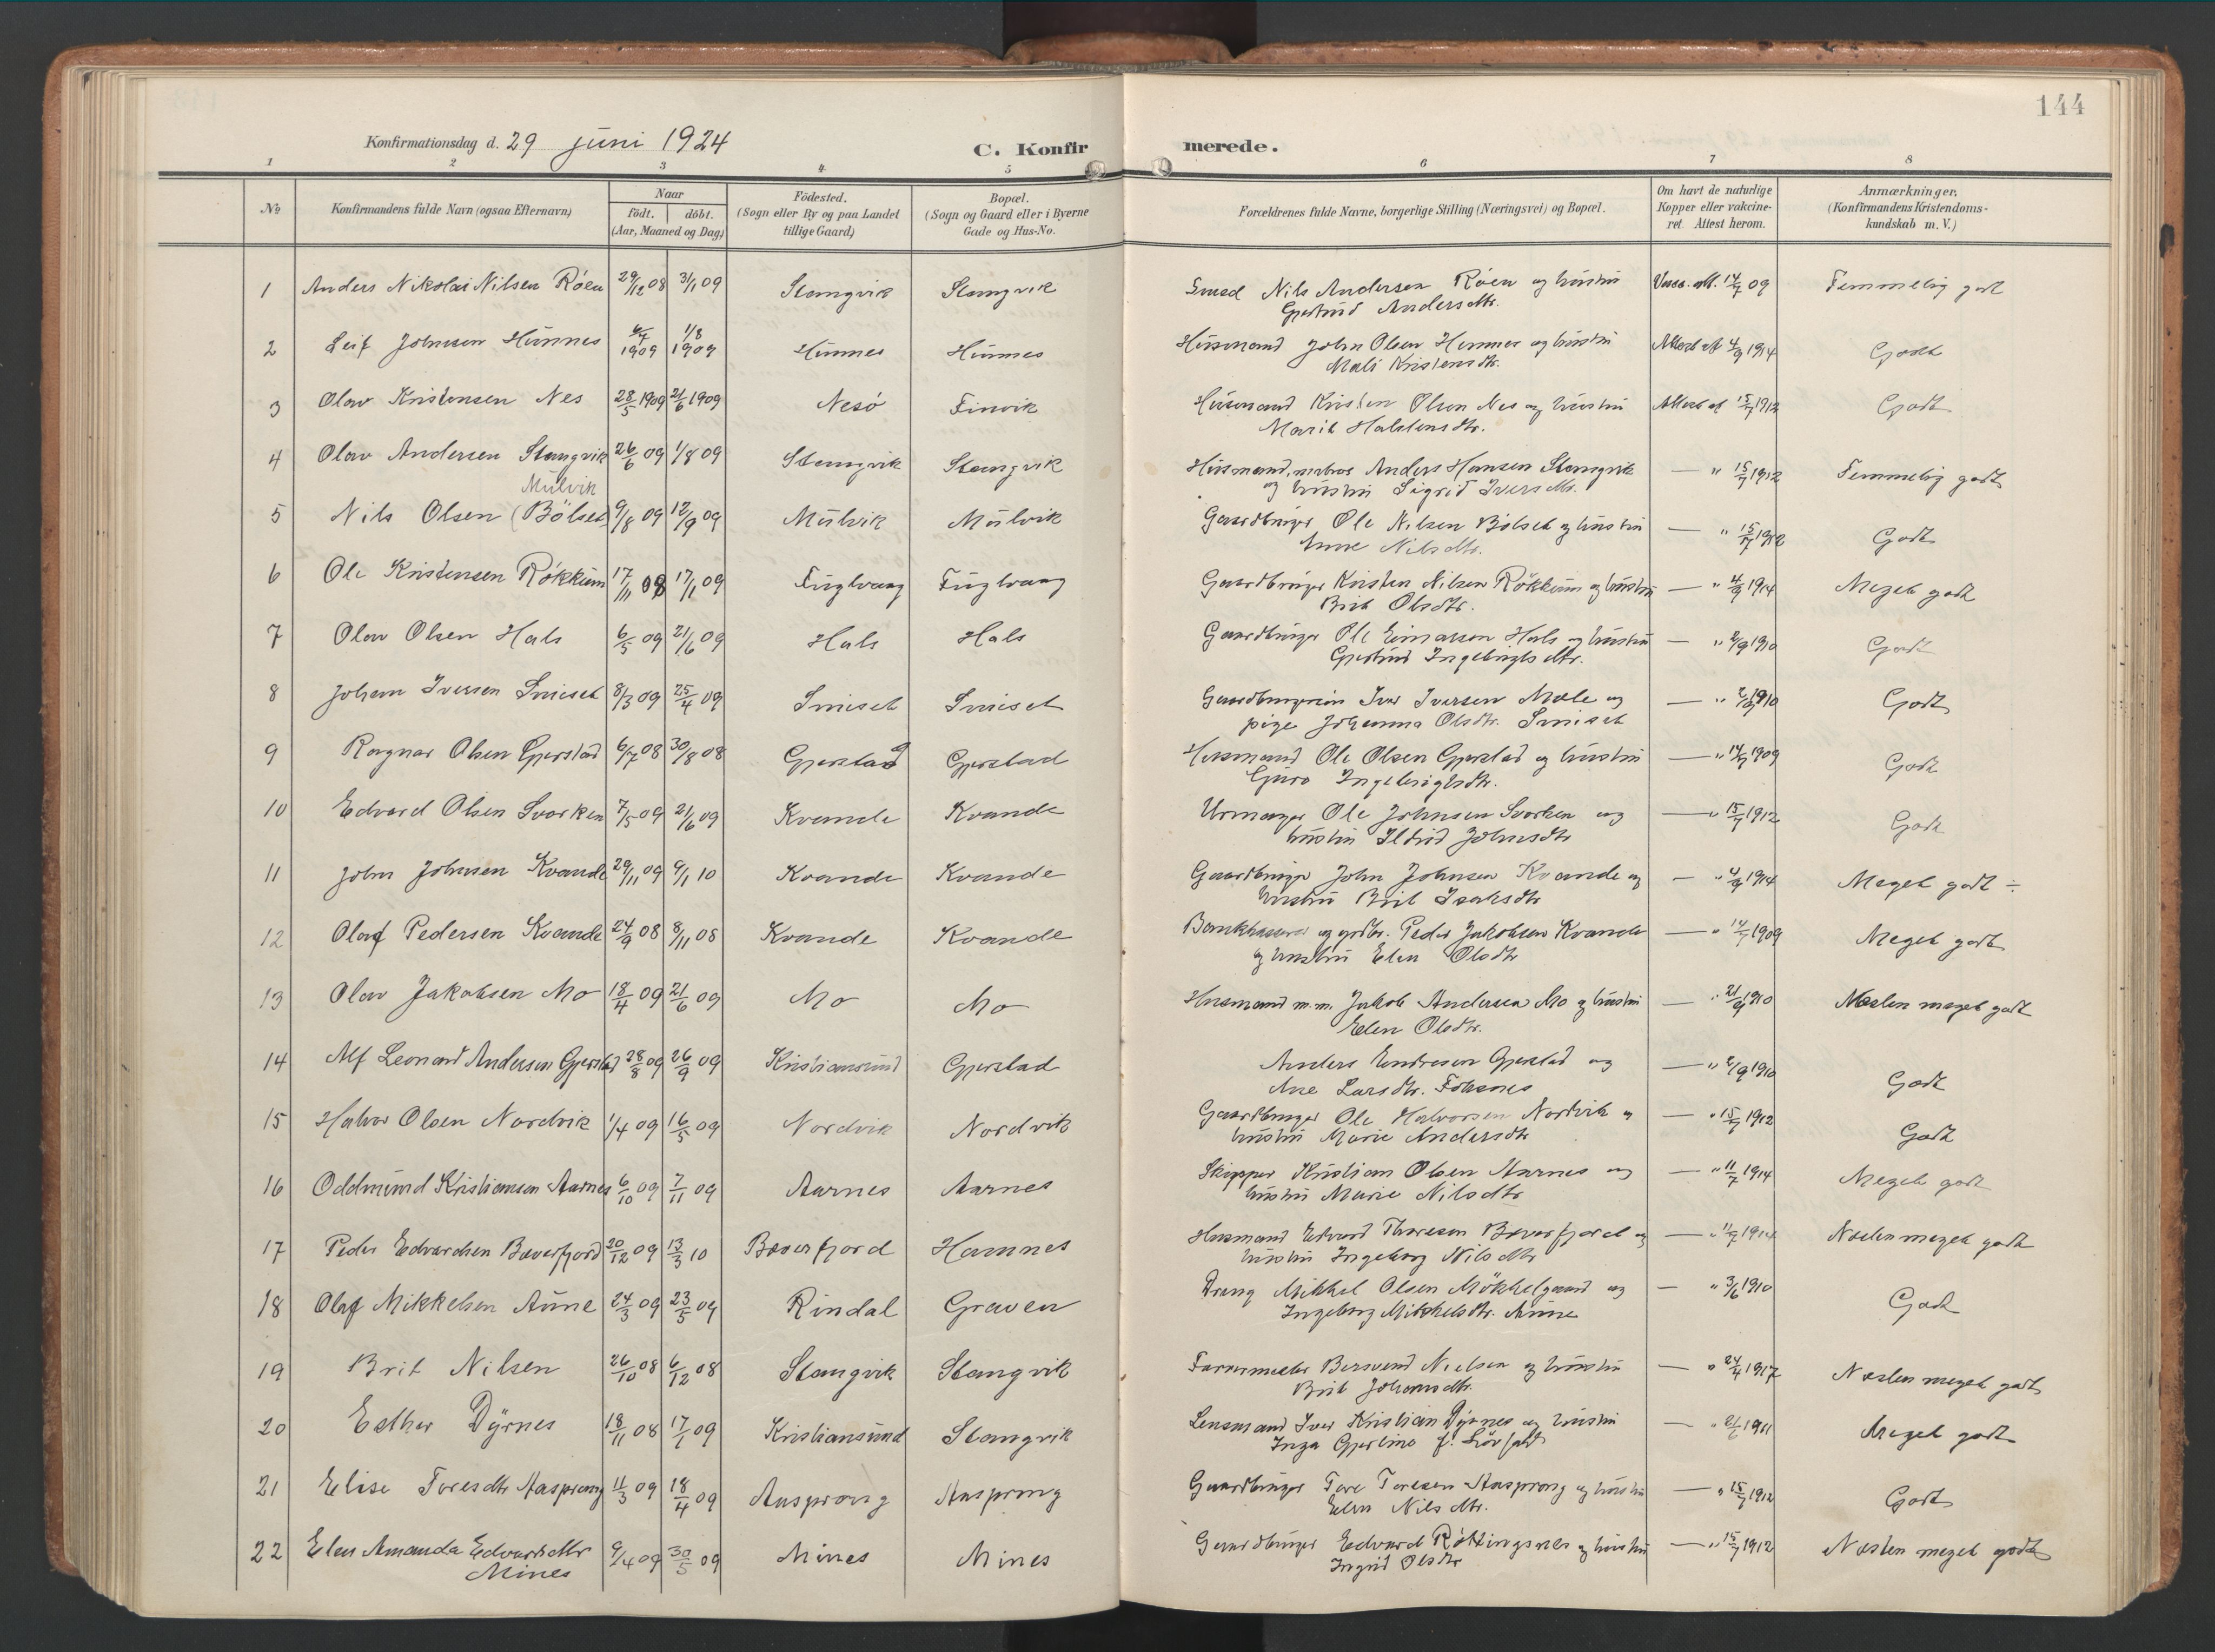 144
Konfirmationsdag d. 29 juni 1924
C. Konfirmerede.
1 2 3 4 5 6 7 8
No Konfirmandens fulde Navn (ogsaa Efternavn) Naar födt. döbt. (Aar, Maaned og Dag) Födested. (Sogn eller By og paa Landet tillige Gaard) Bopæl. (Sogn og Gaard eller i Byerne Gade og Hus-No. Forældrenes fulde Navne, borgerlige Stilling (Næringsvei) og Bopæl. Om havt de naturlige Kopper eller vakcineret. Attest herom. Anmærkninger. (Konfirmandens Kristendomskundskab m. V.)
1 Anders Nikolai Nilsen Röen 29/12 08 3/1 09 Stangvik Stangvik Smed Nils Andersen Röen og hustru Vacc. att. 14/7 09 Temmelig godt
Gjertrud Andersdtr.
2 Leif Johnsen Hünnes 4/4 1909 1/8 1909 Hünnes Hünnes Husmand John Olsen Hünnes og hustru Attest af 4/9 1914 Godt
Mali Kristensdtr.
3 Olav Kristensen Nes 28/5 1909 21/6 1909 Nesö Finvik Husmand Kristen Olsen Nes og hustru Attest af 15/7 1912 Godt
Marit Halstensdtr.
4 Olav Andersen Stangvik 26/6 09 1/8 09 Stangvik Stangvik Husmand, Anders Hansen Stangvik — " 15/7 1912 Temmelig godt
og hustru Sigrid Iversdtr.
Mulvik
5 Nils Olsen (Bölset) 9/8 09 12/9 09 Mulvik Mulvik Gaardbruger Ole Nilsen Bölset og hustru — " 15/7 1912 Godt
Anne Nilsdtr.
6 Ole Kristensen Rökkum 17/11 08 17/1 09 Fuglvaag Fuglvaag Gaardbruger Kristen Nilsen Rökkum og hustru — " 4/9 1914 Meget godt
Brit Olsdtr.
7 Olav Olsen Hals 6/5 09 21/6 09 Hals Hals Gaardbruger Ole Einarsen Hals og hustru — " 2/9 1910 Godt
Gjertrud Ingebrigtsdtr.
8 Johan Iversen Sniset 8/3 09 25/4 09 Sniset Sniset Iver Iversen Mæle og — " 2/9 1910 Godt
pige Johanna Olsdtr. Sniset
9 Ragnar Olsen Gjerstad 6/7 08 30/8 08 Gjerstad Gjerstad Husmand Ole Olsen Gjerstad og hustru — " 14/7 1909 Godt
Guro Ingebrigtsdtr.
10 Edvard Olsen Svorken 7/5 09 21/6 09 Kvande Kvande Urmager Ole Johnsen Svorken og — " 15/7 1912 Godt
hustru Ildrid Johnsdtr
11 John Johnsen Kvande 29/11 09 9/1 10 Kvande Kvande Gaardbruger John Johnsen Kvande og — " 4/9 1914 Meget godt ÷
hustru Brit Isaksdtr
12 Olaf Pedersen Kvande 24/9 08 8/11 08 Kvande Kvande Bankkasserer og grdbr. Peder Jakobsen Kvande — " 14/7 1909 Meget godt
og hustru Elen Olsdtr
13 Olav Jakobsen Mo 18/4 09 21/6 09 Mo Mo Husmand m.m. Jakob Andersen Mo og hustru — " 21/9 1910 Næsten meget godt
Elen Olsdtr.
14 Alf Leonard Andersen Gjerstad 28/8 09 26/9 09 Kristiansund Gjerstad Anders Endresen Gjerstad og — " 2/9 1910 Godt
Ane Larsdtr. Foksnes
15 Halvor Olsen Nordvik 1/4 09 16/5 09 Nordvik Nordvik Gaardbruger Ole Halvorsen Nordvik og — " 15/7 1912 Godt
hustru Marie Andersdtr
16 Oddmund Kristiansen Aarnes 6/10 09 7/11 09 Aarnes Aarnes Skipper Kristian Olsen Aarnes og — " 11/7 1914 Meget godt
hustru Marie Nilsdtr
17 Peder Edvardsen Bæverfjord 20/12 09 13/3 10 Bæverfjord Hamnes Husmand Edvard Thoresen Bæverfjord og — " 11/7 1914 Næsten meget godt
hustru Ingeborg Nilsdtr
18 Olaf Mikkelsen Aune 24/3 09 23/5 09 Rindal Graven Dreng Mikkel Olsen Mökkelgaard og — " 3/6 1910 Godt
Ingeborg Mikkelsdtr. Aune
19 Brit Nilsen 26/10 08 6/12 08 Stangvik Stangvik Farvermester Bersvend Nielsen og hustru — " 24/4 1917 Næsten meget godt
Brit Johansdtr.
20 Esther Dyrnes 18/11 08 17/1 09 Kristiansund Stangvik Lensmand Iver Kristian Dyrnes og hustru — " 21/6 1911 Meget godt
Inga Gjertine f.
21 Elise Toresdtr Aasprong 11/3 09 18/4 09 Aasprong Aasprong Gaardbruger Tore Toresen Aasprong og hustru — " 15/7 1912 Godt
Elen Nilsdtr.
22 Elen Amanda Edvardsdtr 9/4 09 30/5 09 Mines Mines Gaardbruger Edvard Röttingsnes og hustru — " 15/7 1912 Næsten meget godt
Mines Ingrid Olsdtr